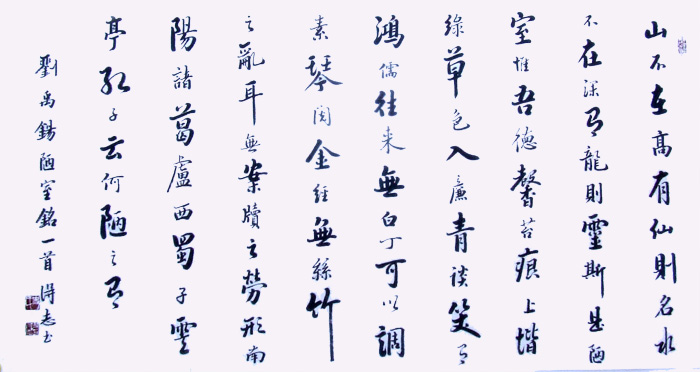 山不在高有仙則名水
不在深有龍則靈斯是陋
室惟吾德馨苔痕上堦
綠草色入廉青談笑有
鴻儒往来無白丁可以調
素琴閱金經無絲竹
之亂耳無案牘之勞形南
陽諸葛盧西蜀子雲
亭孔子云何陋之有
劉禹錫陋室銘一首得志书